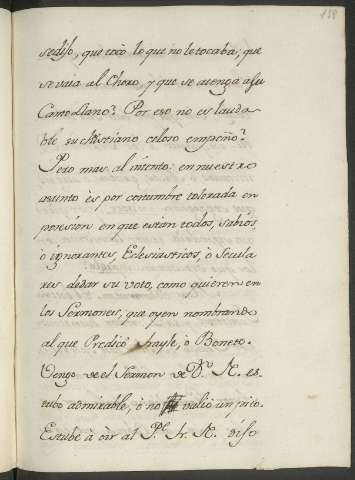 158
se diso, que tocò lo que no le tocaba; que
se vaia al Choro, y que se atenga a su
Canto Llano? Por eso no es lauda
ble su christiano celoro empeño?
Pero mas al intento: en nuestro
asunto ès por costumbre tolerada en
posesion en que estan todos, sabios,
ò ignorantes, Eclesiasticos, ò Secula
res de dar su voto, como quieren en
los Sermones, que oyen nombrando
al que Predicò Frayle, ò Bonete.
Vengo de el Sermon de Dn. N. es
tubo admirable, ò no valio un pito.
Estube à oìr al Pe. Fr. N. diso